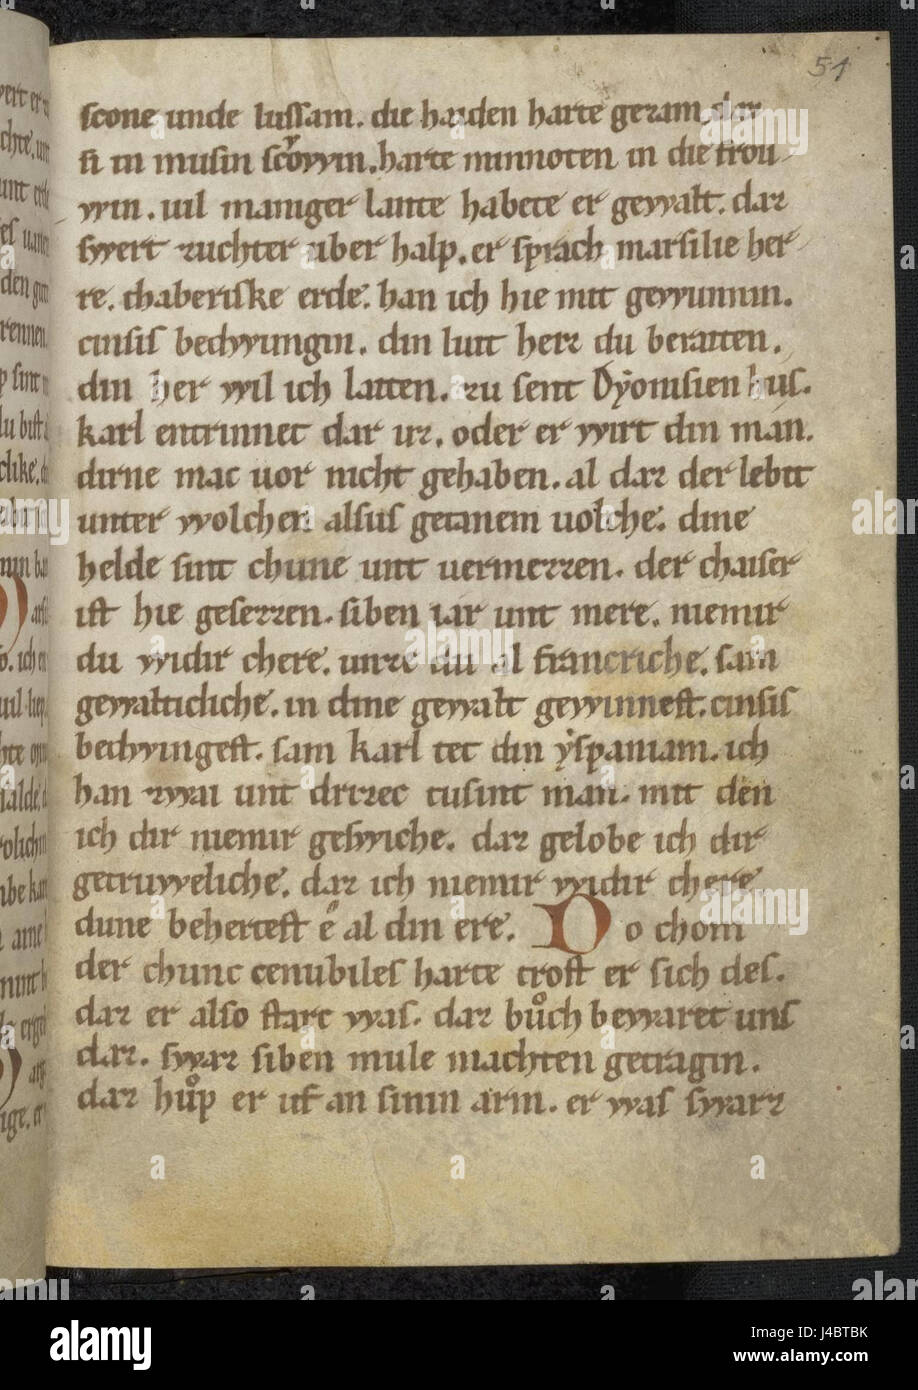 51
scone unde lussam. die haiden harte gezam. daz
si in musin scowin. harte minnoten in die frou
win. uil maniger lante habete er gewalt. daz
swert zuchter uber halp. er sprach marsilie her
re. chaberiske erde. han ich hie mit gewunnin.
cinsis bedwungin. din lut herz du beraiten.
din her wil ich laiten. zu sent Dẏonisien hus.
karl entrinnet dar uz. oder er wirt din man.
dirne mac uor nicht gehaben. al daz der lebit
unter wolchen alsus getanem uolche. dine
helde sint chune unt uermezzen. der chaiser
ist hie gesezzen. siben iar unt mere. niemir
du widir chere. unze du al francriche. sam
gewalticliche. in dine gewalt gewinnest. cinsis
bedwingest. sam karl tet din ẏspaniam. ich
han zwai unt drizec tusint man. mit den
ich dir niemir geswiche. daz gelobe ich dir
getruweliche. daz ich niemir widir chere
dune behertest e al din ere. Do chom
der chunc cenubiles harte trost er sich des.
daz er also starc was. daz bůch bewaret uns
daz. swaz siben mule machten getragin.
daz hůp er uf an sinin arm. er was swarz
alamy
Image ID: J4BTBK
www.alamy.com